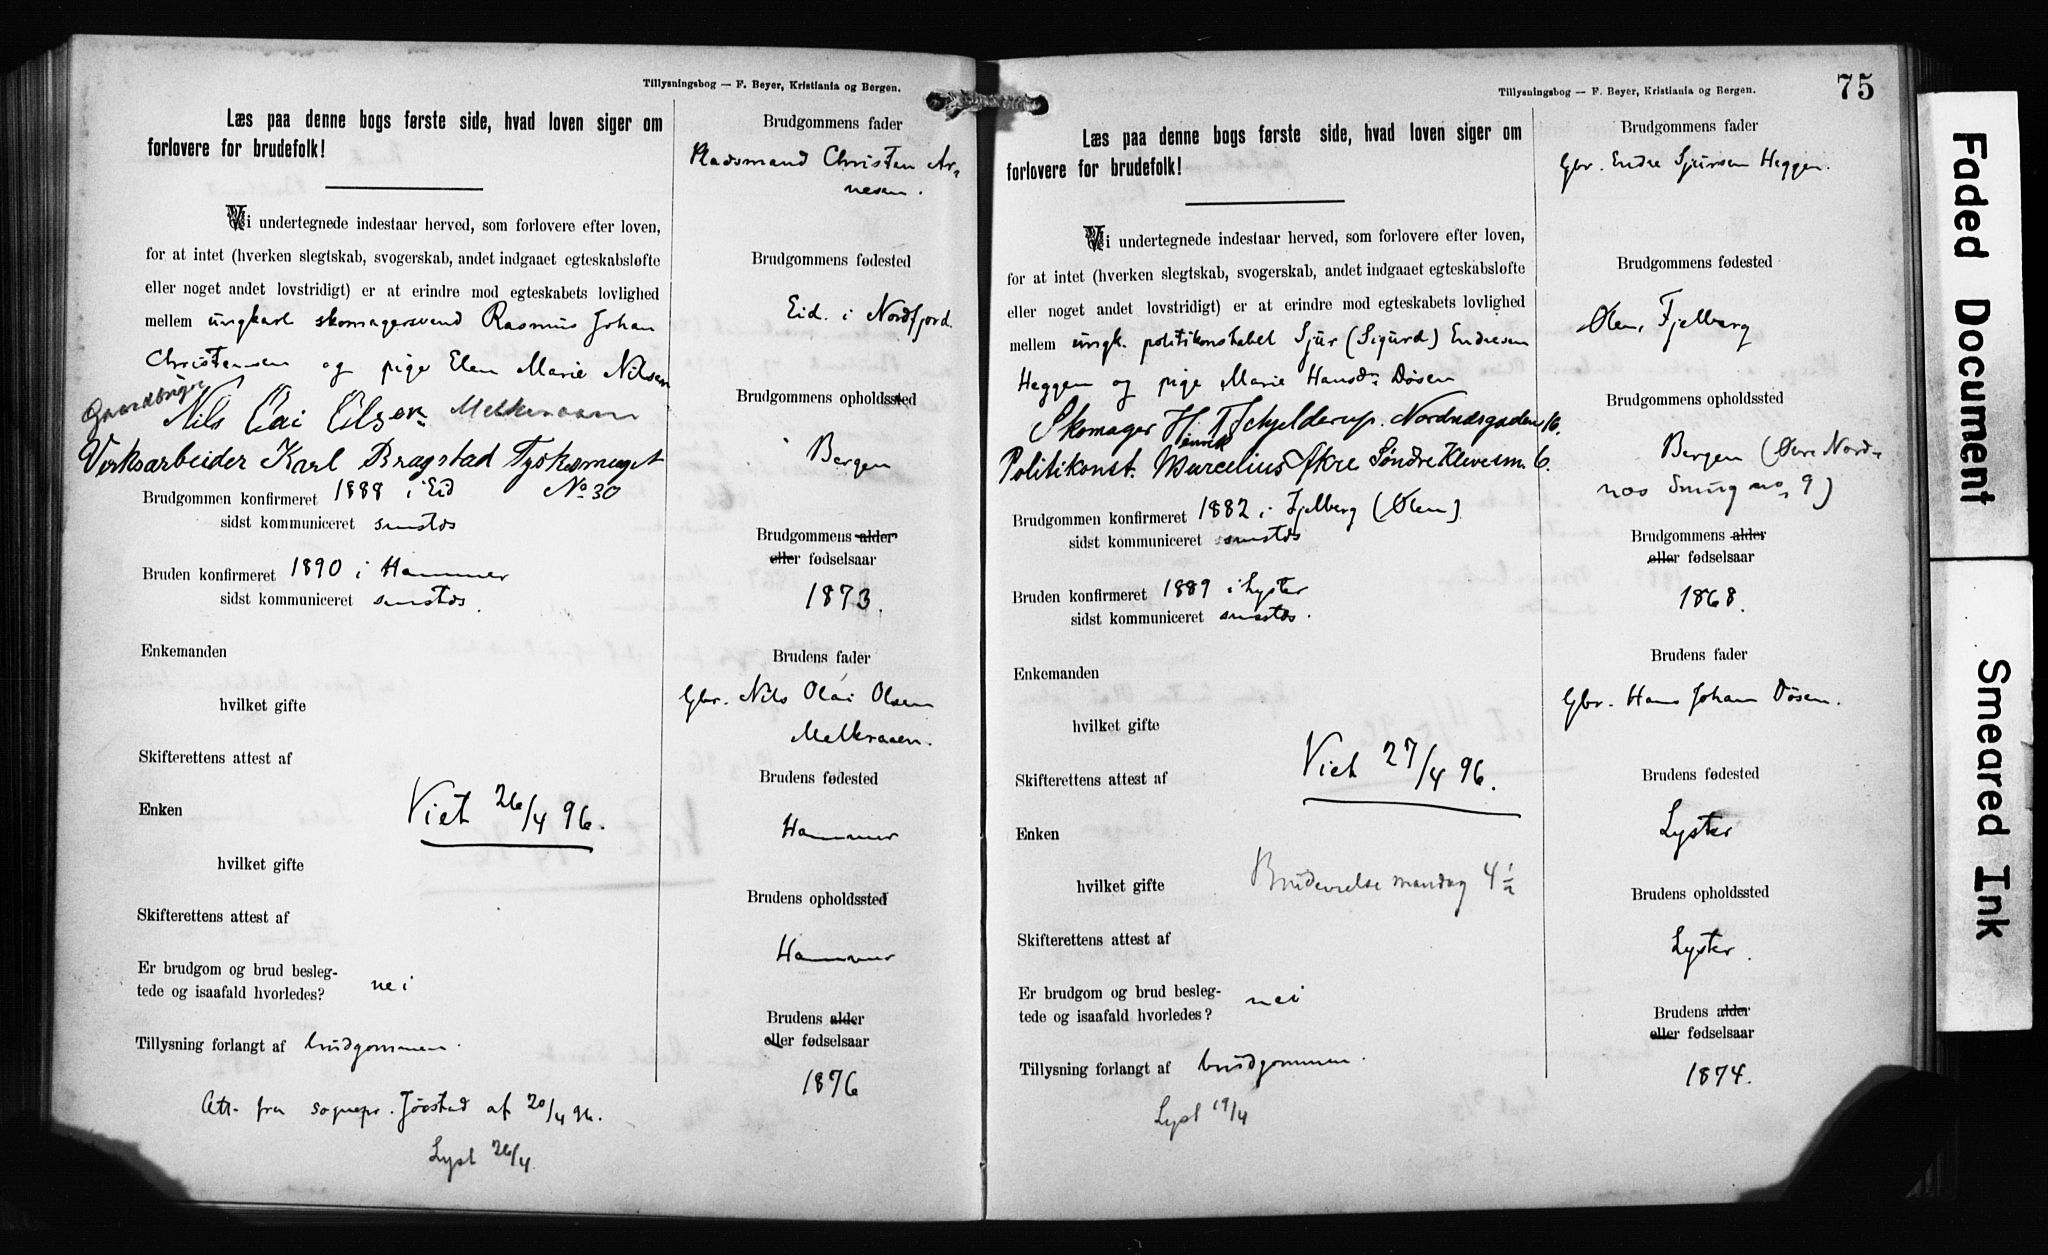 Tillysningsbog — F. Beyer, Kristiania og Bergen.
Læs paa denne bogs første side, hvad loven siger om
forlovere for brudefolk!
Vi undertegnede indestaar herved, som forlovere efter loven,
for at intet (hverken slegtskab, svogerskab, andet indgaaet egteskabsløfte
eller noget andet lovstridigt) er at erindre mod egteskabets lovlighed
mellem ungkarl skomagersvend Rasmus Johan
Christensen og pige Elen Marie Nilsen
Gaardbruger
Nils Olai Olsen Melkeraaen
Verksarbeider Karl Bragstad Tyskesmuget
No 30
Brudgommen konfirmeret 1888 i Eid
sidst kommuniceret smstds
Bruden konfirmeret 1890 i Hammer
sidst kommuniceret smstds.
Enkemanden
hvilket gifte
Skifterettens attest af
Viet 26/4 96.
Enken
hvilket gifte
Skifterettens attest af
Er brudgom og brud besleg-
tede og isaafald hvorledes? nei
Tillysning forlangt af brudgommen.
Att. fra sognepr. Jørstad af 20/4 96.
Lyst 26/4
Brudgommens fader
Pladsmand Christen Ar-
nesen.
Brudgommens fødested
Eid. i Nordfjord.
Brudgommens opholdssted
Bergen
Brudgommens alder
eller fødselsaar
1873.
Brudens fader
Gbr. Nils Olai Olsen
Melkeraaen.
Brudens fødested
Hammer
Brudens opholdssted
Hammer
Brudens alder
eller fødselsaar
1876
Tillysningsbog — F. Beyer, Kristiania og Bergen.
75
Læs paa denne bogs første side, hvad loven siger om
forlovere for brudefolk!
Vi undertegnede indestaar herved, som forlovere efter loven,
for at intet (hverken slegtskab, svogerskab, andet indgaaet egteskabsløfte
eller noget andet lovstridigt) er at erindre mod egteskabets lovlighed
mellem ungk. politikonstabel Sjur (Sigurd) Endresen
Heggen og pige Marie Hansdr Døsen
Skomager Henrik T Schjelderup. Nordnæsgaden 16.
Politikonst. Marcelius Akre Søndre Klevesm. 6.
Brudgommen konfirmeret 1882 i Fjelberg (Ølen)
sidst kommuniceret smstds
Bruden konfirmeret 1889 i Lyster
sidst kommuniceret smstds.
Enkemanden
hvilket gifte
Viet 27/4 96.
Skifterettens attest af
Enken
hvilket gifte Brudevielse mandag 4 1/2
Skifterettens attest af
Er brudgom og brud besleg-
tede og isaafald hvorledes? nei
Tillysning forlangt af brudgommen.
Lyst 19/4
Brudgommens fader
Gbr. Endre Sjursen Heggen.
Brudgommens fødested
Ølen, Fjelberg
Brudgommens opholdssted
Bergen (Øvre Nord-
næs Smug no 9)
Brudgommens alder
eller fødselsaar
1868.
Brudens fader
Gbr. Hans Johan Døsen.
Brudens fødested
Lyster
Brudens opholdssted
Lyster.
Brudens alder
eller fødselsaar
1874.
Faded Document
Smeared Ink